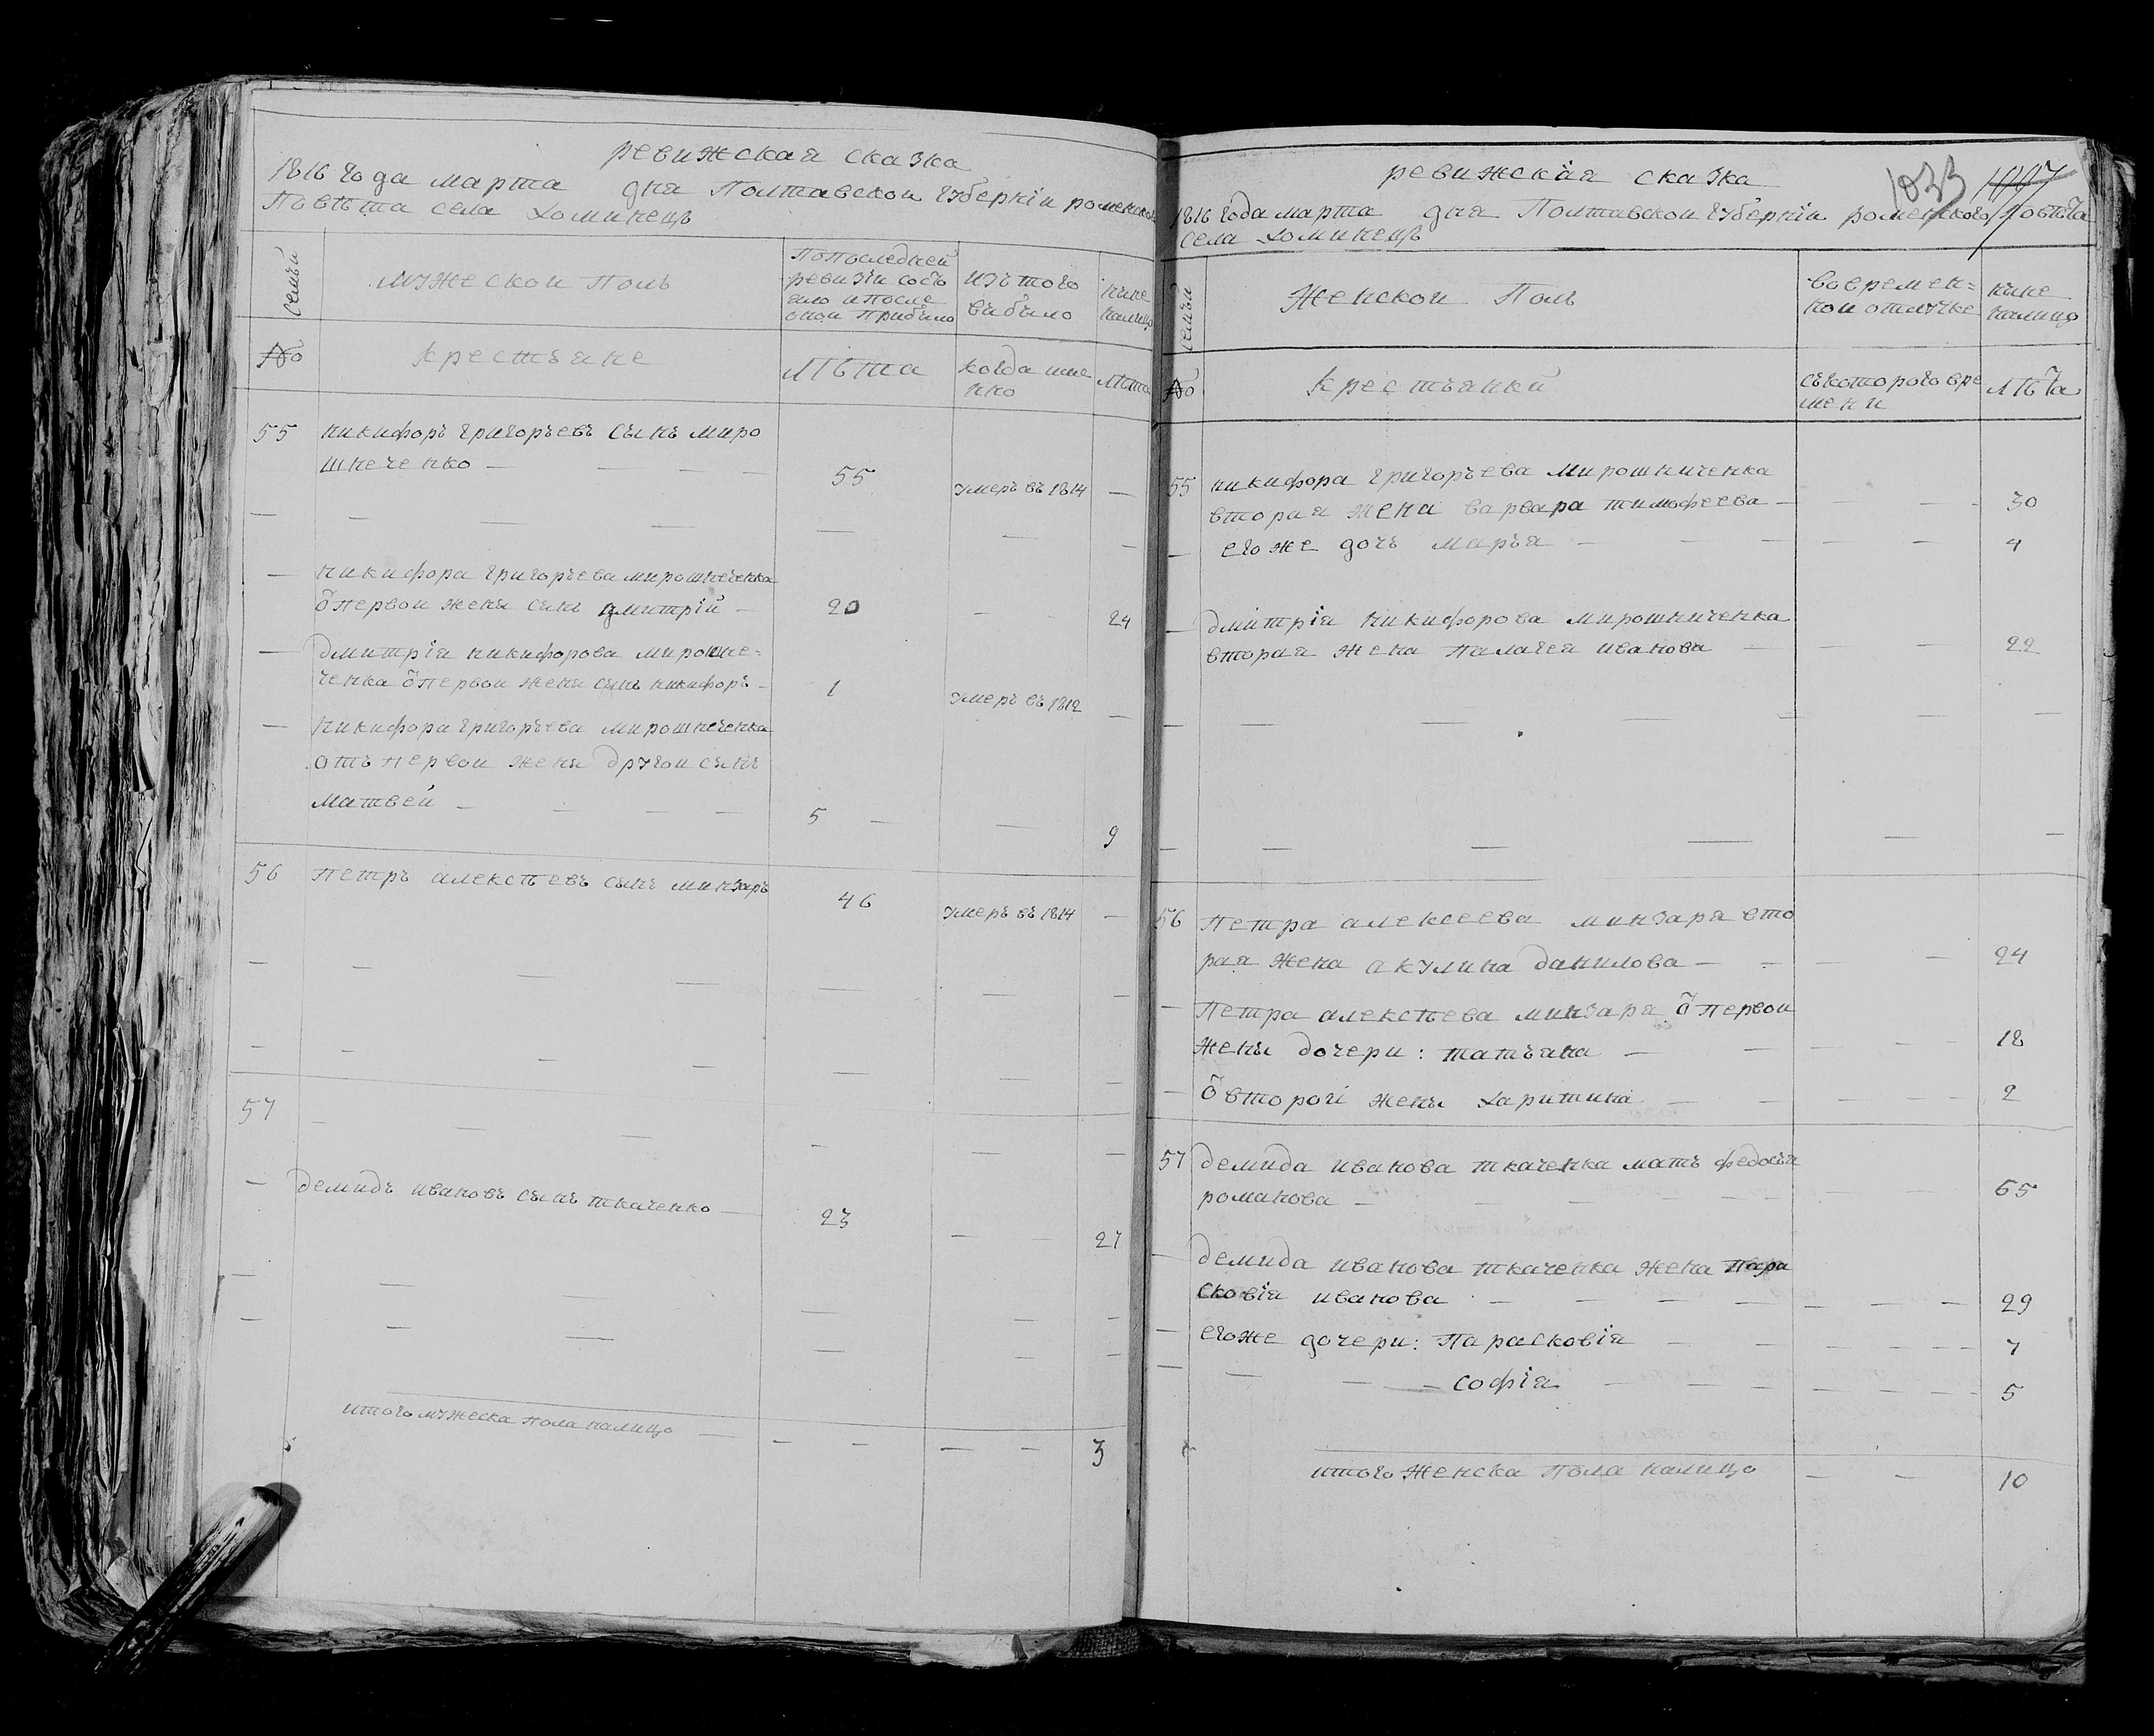 ревижская сказка
1816 года марта дня Полтавской губернiи роменского
Повѣта села хоминецъ
семьи
мужеской Полъ
Попоследней
ревизiи состъ
яло и после
оной Прибыло
изъ того
выбыло
ныне
налицо
№
крестъяне
лѣта
когда име
нно
лѣта
55 никифоръ григоръевъ сынъ миро
шнеченко — — — — 55 умеръ въ 1814 —
— никифора григоръева мирошнеченка
ѿ первой жены сынъ дмитрiй — 20 — 24
— дмитрiя никифорова мирошне=
ченка ѿ первой жены сынъ никифоръ — 1 умеръ въ 1812 —
— никифора григоръева мирошнеченка
отъ первой жены другой сынъ
матвей — — — — 5 — — 9
56 петръ алексѣевъ сынъ минзаръ 46 умеръ въ 1814 —
57
— демидъ ивановъ сынъ ткаченко — 23 — — 27
итого мужеска пола налицо — — — — — 3
ревижскiя сказка
1033 1007
1816 года марта дня Полтавской губернiи роменского Повѣта
села хоминецъ
семьи
Женской Полъ
вовремен=
ной отлучке
ныне
налицо
№
крестъянки
съкоторого вре
мени
лѣта
55 никифора григоръева мирошниченка
вторая жена варвара тимофеева — — — 30
— его же дочь маръя — — — — 4
— дмитрiя никифорова мирошниченка
вторая жена палагея иванова — — — 22
56 Петра алексеева минзаря вто
рая жена акулина данилова — — — — 24
— Петра алексѣева минзаря ѿ первой
жены дочери: татъяна — — — — 18
— ѿ второй жены харитина — — — — 2
57 демида иванова ткаченка мать федосъя
романова — — — — 65
— демида иванова ткаченка жена пара
сковiя иванова — — — — — — — 29
— егоже дочери: Парасковiя — — — — — 7
— — — — софiя — — — — — — — 5
итого женска пола налицо — — 10